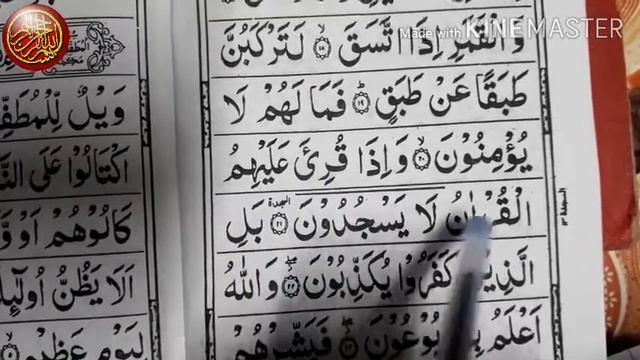 Made with KINEMASTER
وَالْقَمَرِ اِذَا اتَّسَقَ ۙ‏﴿۱۸﴾ لَتَرْكَبُنَّ
طَبَقًا عَنْ طَبَقٍ ؕ‏﴿۱۹﴾ فَمَا لَهُمْ لَا
يُؤْمِنُوْنَ ۙ‏﴿۲۰﴾ وَاِذَا قُرِئَ عَلَيْهِمُ
الْقُرْاٰنُ لَا يَسْجُدُوْنَ ﴿۲۱﴾ السجدة بَلِ
الَّذِيْنَ كَفَرُوْا يُكَذِّبُوْنَ ﴿۲۲﴾ وَاللّٰهُ
اَعْلَمُ بِمَا يُوْعُوْنَ ﴿۲۳﴾ فَبَشِّرْهُمْ
وَيْلٌ لِّلْمُطَفِّ
اكْتَالُوْا عَلَى النَّا
كَالُوْهُمْ اَوْ وَّ
اَلَا يَظُنُّ اُولٰٓئِ
لِيَوْمٍ عَظِيْمٍ